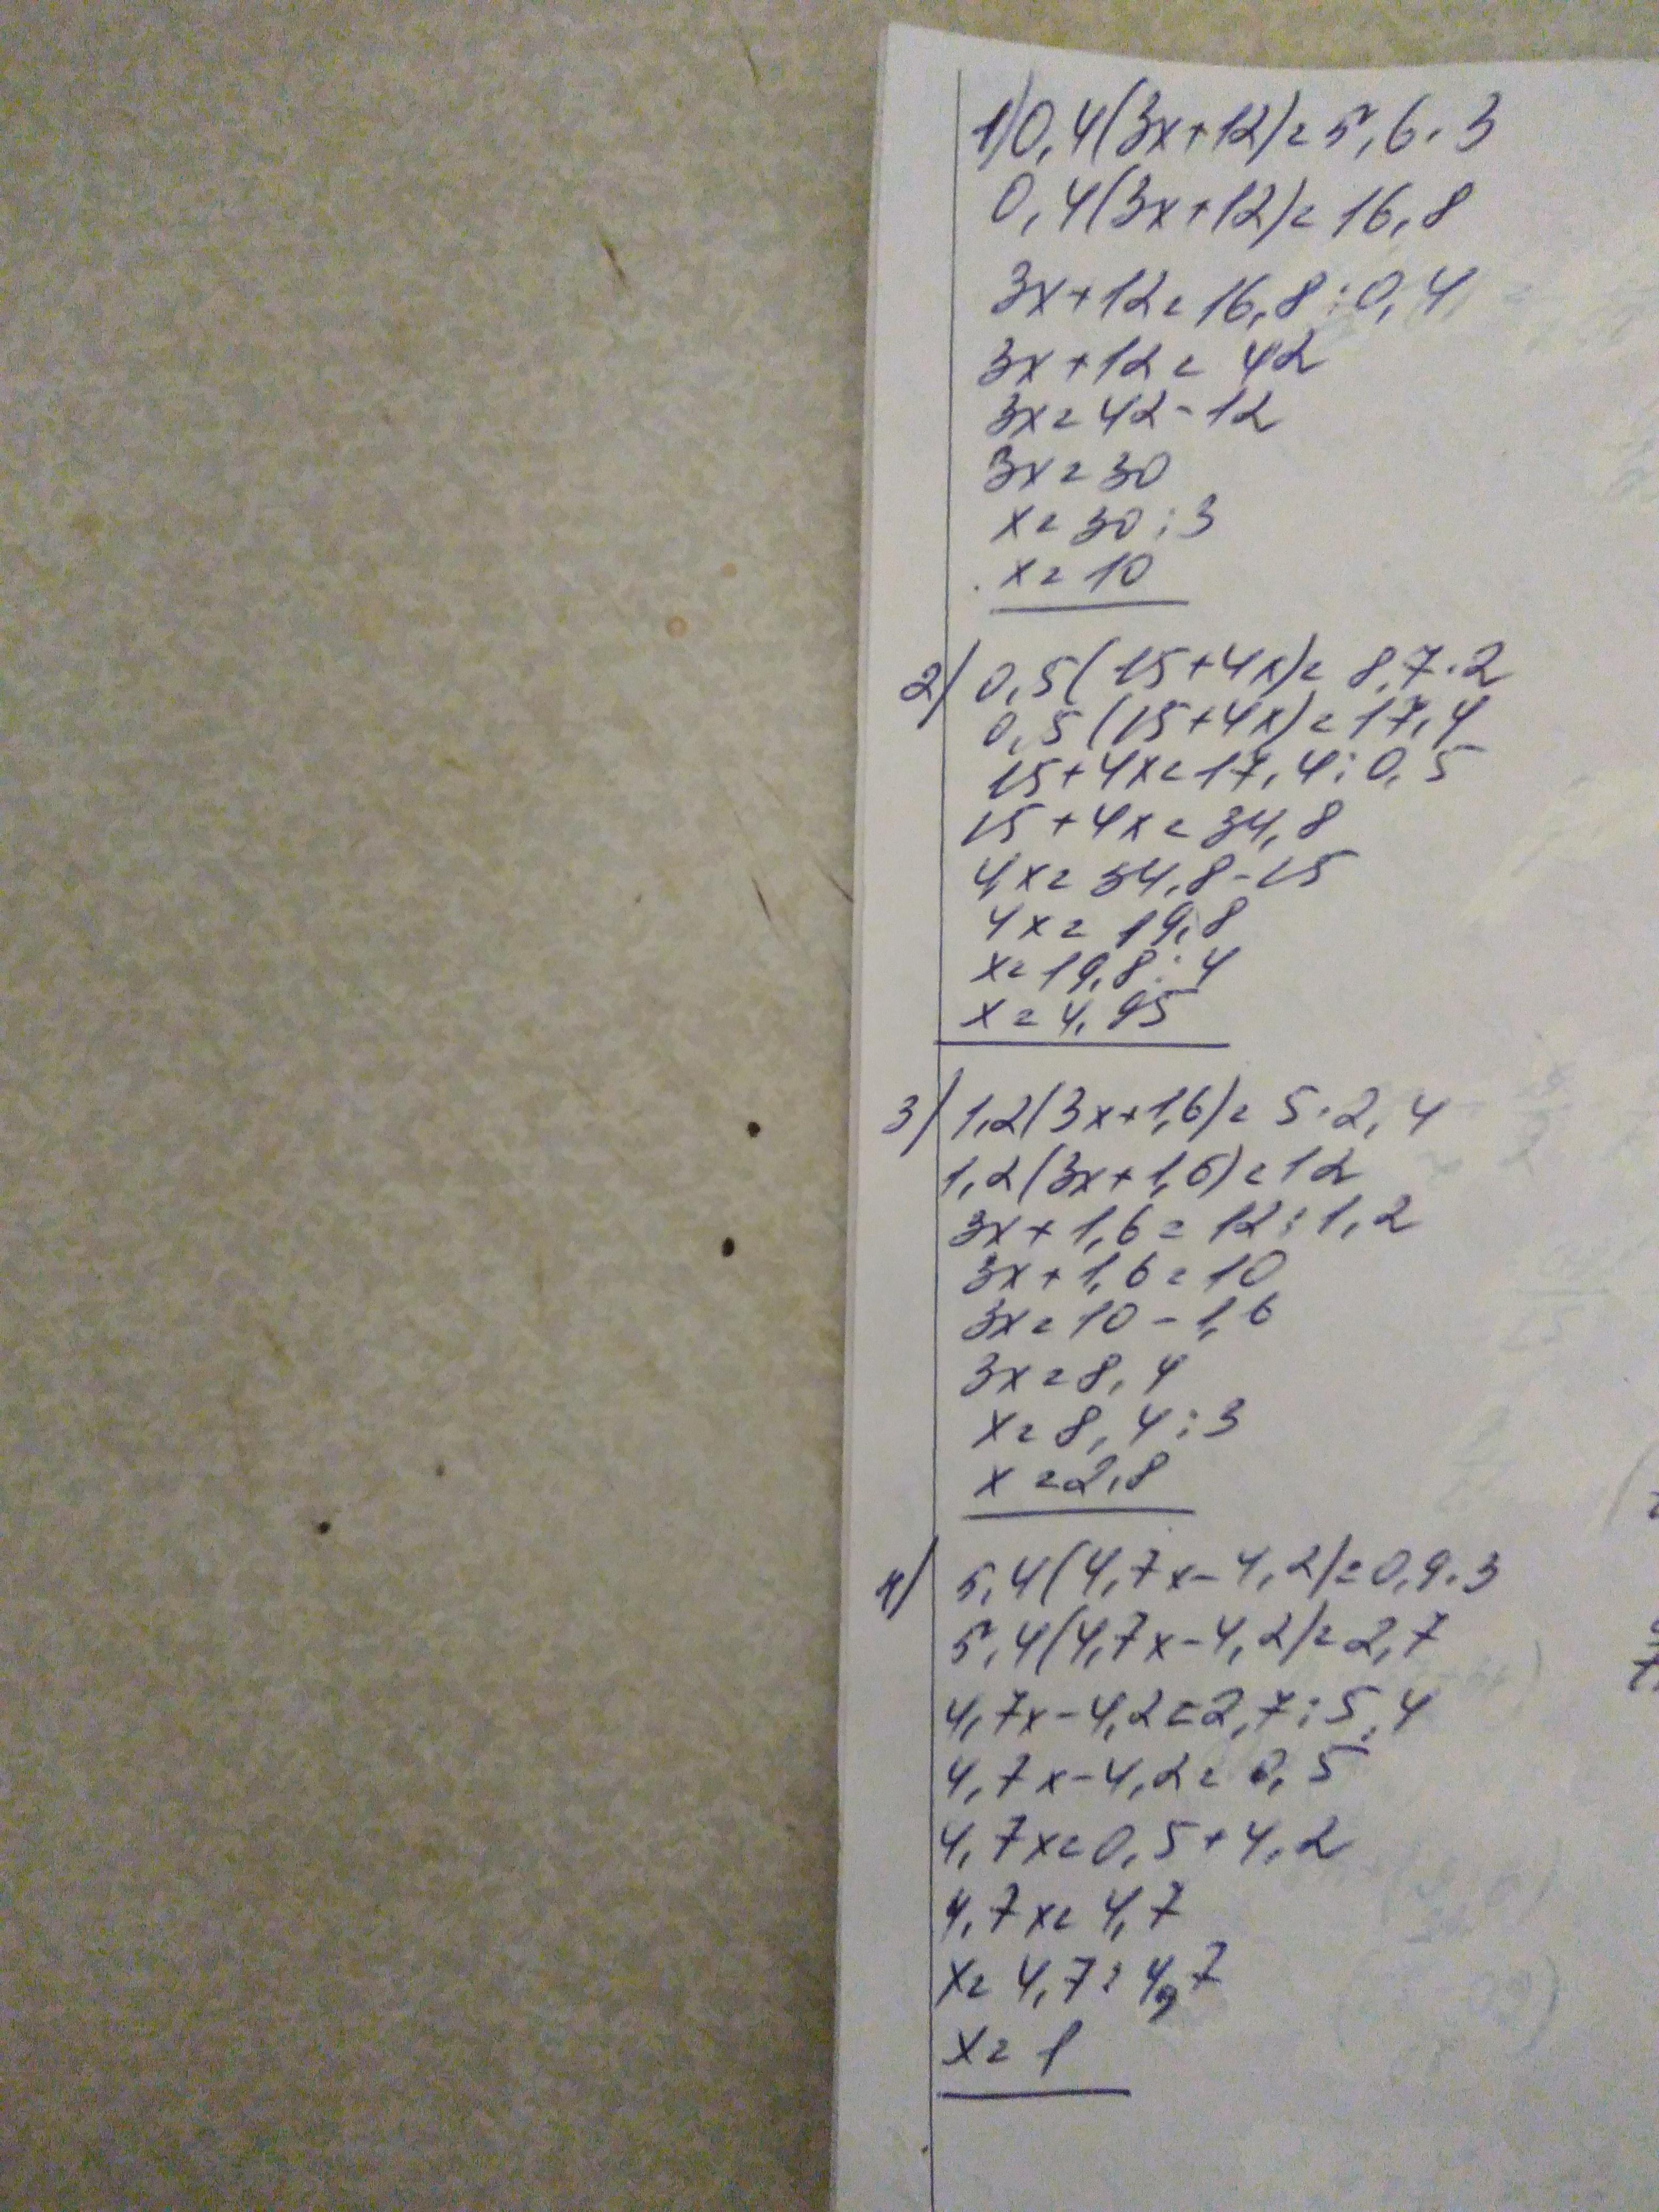 1) 0,4(3x+12)=5,6·3
0,4(3x+12)=16,8
3x+12=16,8:0,4
3x+12=42
3x=42-12
3x=30
x=30:3
x=10
2) 0,5(15+4x)=8,7·2
0,5(15+4x)=17,4
15+4x=17,4:0,5
15+4x=34,8
4x=34,8-15
4x=19,8
x=19,8:4
x=4,95
3) 1,2(3x+1,6)=5·2,4
1,2(3x+1,6)=12
3x+1,6=12:1,2
3x+1,6=10
3x=10-1,6
3x=8,4
x=8,4:3
x=2,8
4) 5,4(4,7x-4,2)=0,9·3
5,4(4,7x-4,2)=2,7
4,7x-4,2=2,7:5,4
4,7x-4,2=0,5
4,7x=0,5+4,2
4,7x=4,7
x=4,7:4,7
x=1